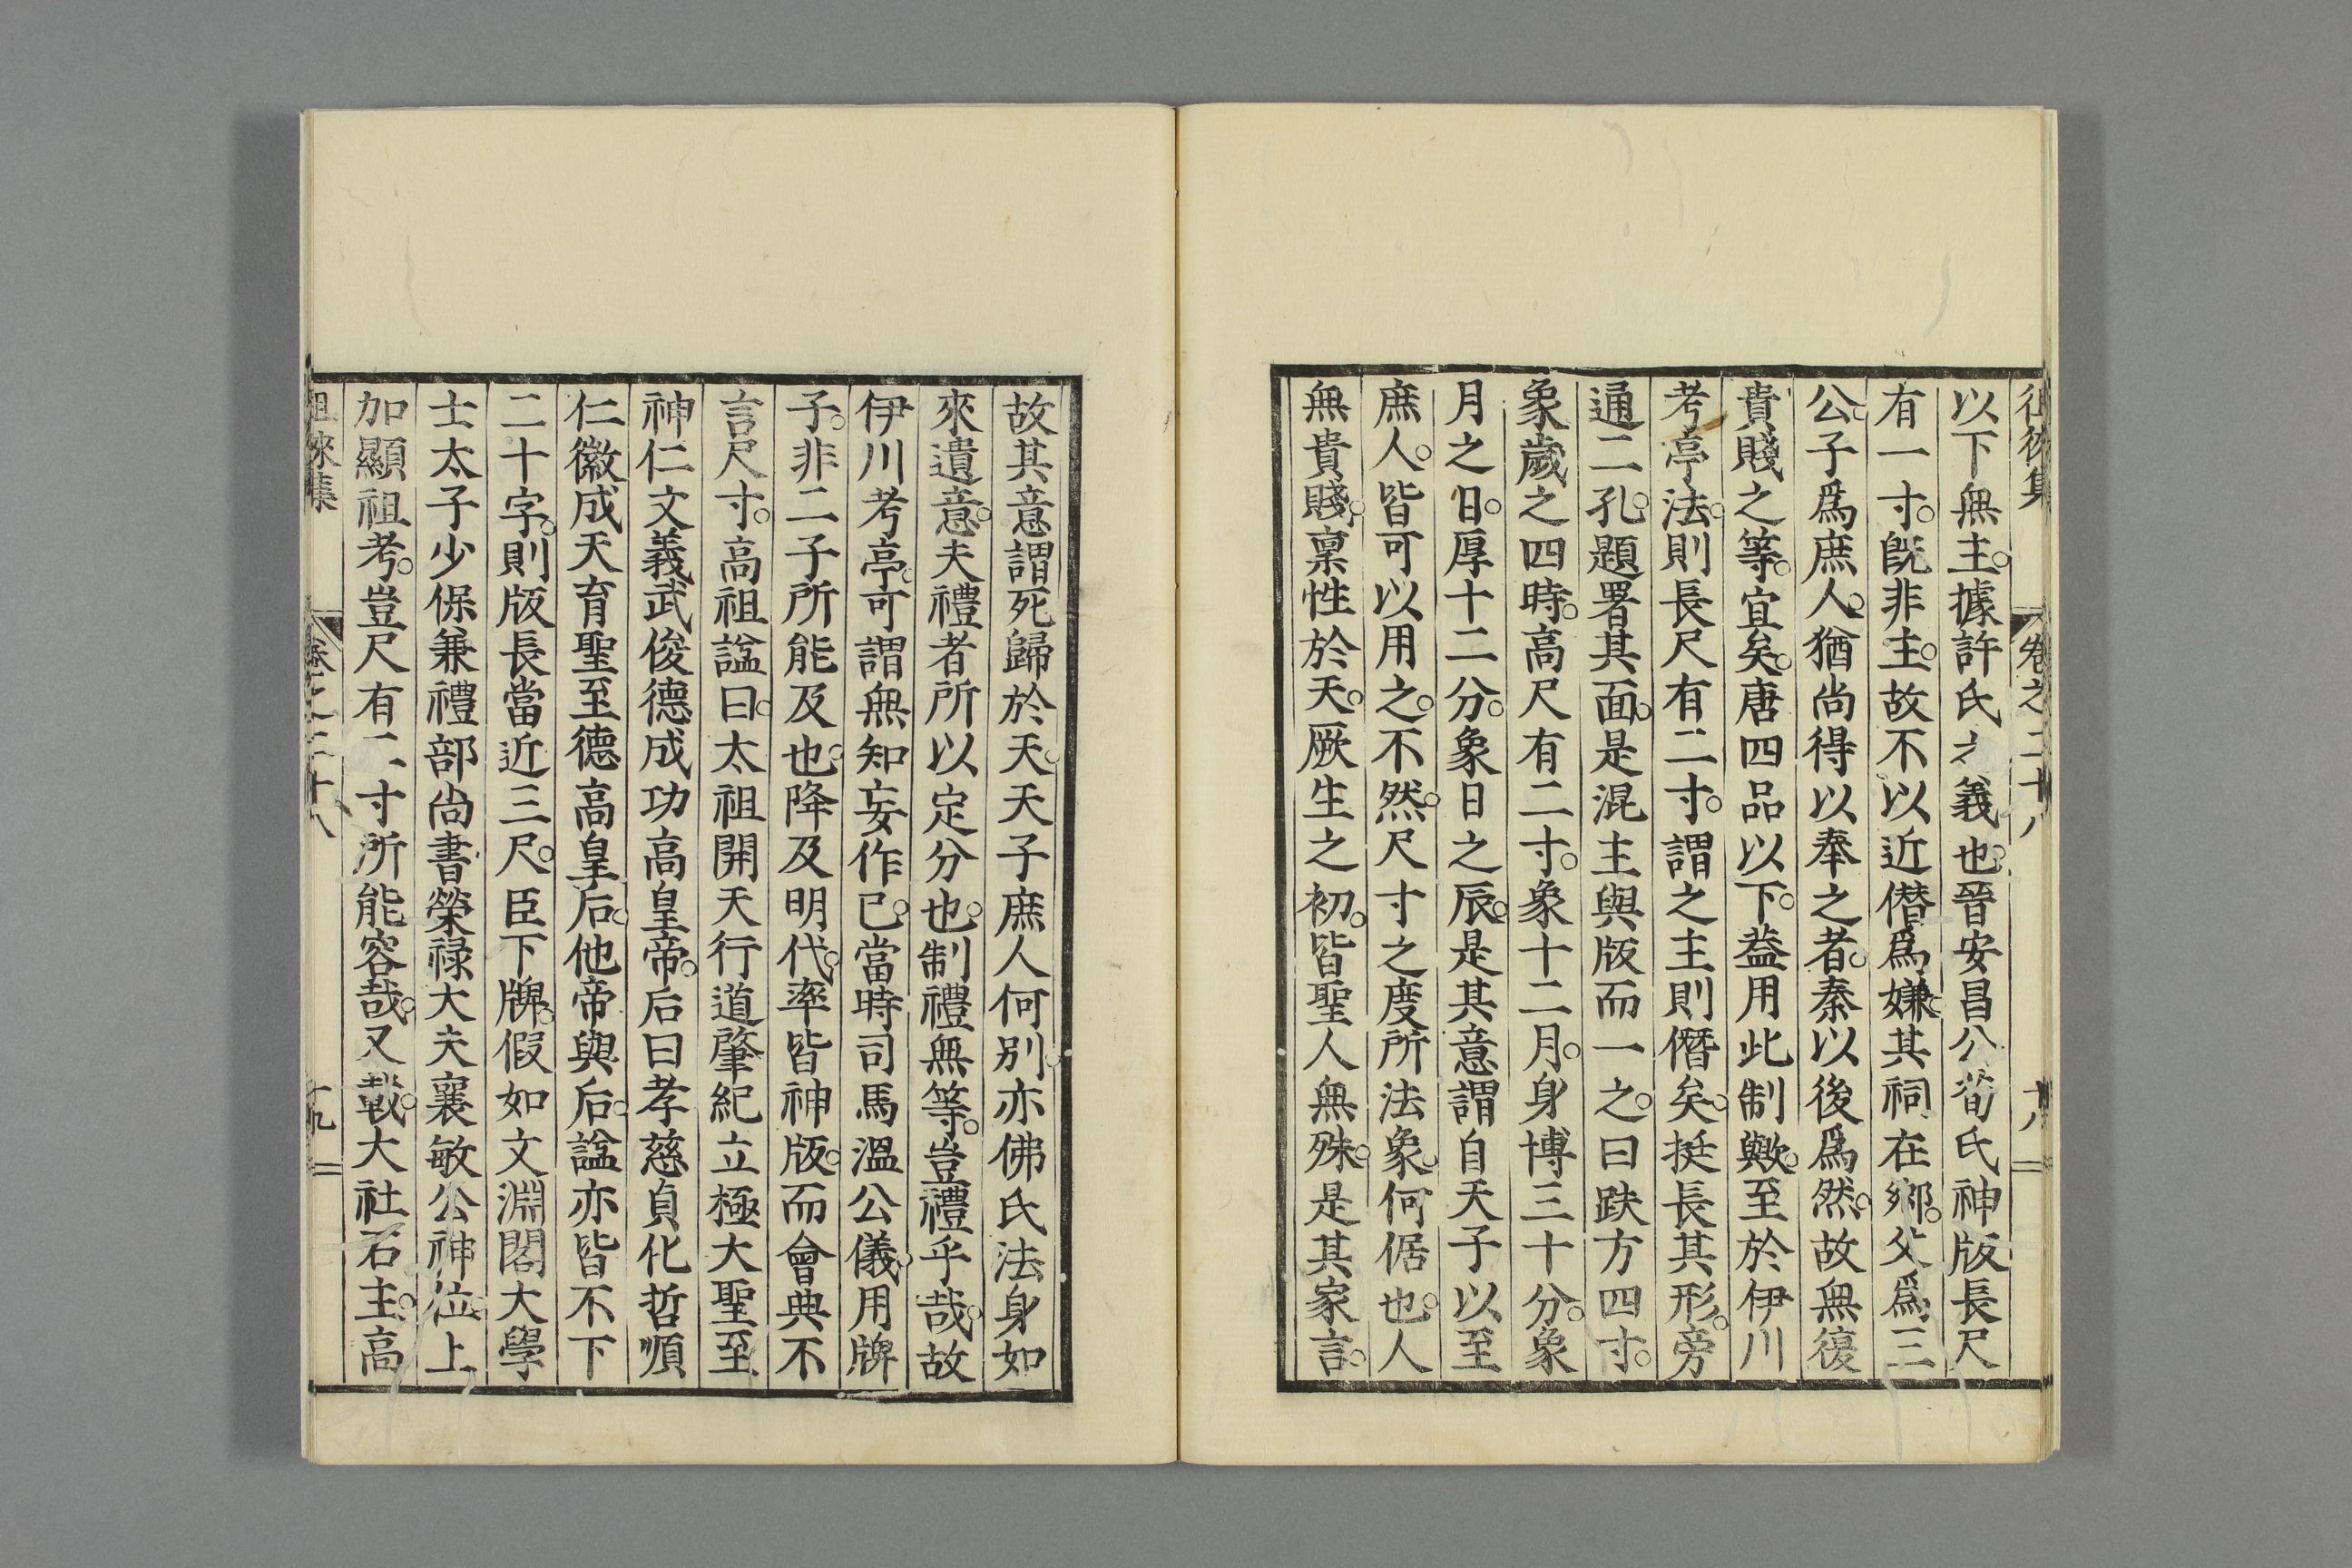 徂徠集 卷之二十八 十八
以下無主。據許氏之義也。晉安昌公荀氏神版長尺
有一寸。旣非主。故不以近僣爲嫌。其祠在鄕。父爲三
公。子爲庶人。猶尚得以奉之者。秦以後爲然。故無復
貴賤之等。宜矣。唐四品以下。葢用此制歟。至於伊川
考亭法。則長尺有二寸。謂之主則僭矣。挺長其形。旁
通二孔。題署其面。是混主與版而一之。曰趺方四寸。
象歲之四時。高尺有二寸。象十二月。身博三十分。象
月之日。厚十二分。象日之辰。是其意謂自天子以至
庶人。皆可以用之。不然。尺寸之度所法象。何倨也。人
無貴賤。稟性於天。厥生之初。皆聖人無殊。是其家言。
故其意謂死歸於天。天子庶人何別。亦佛氏法身如
來遺意。夫禮者所以定分也。制禮無等。豈禮乎哉。故
伊川考亭。可謂無知妄作已。當時司馬溫公儀。用牌
子。非二子所能及也。降及明代。率皆神版。而會典不
言尺寸。高祖諡曰。太祖開天行道肇紀立極大聖至
神仁文義武俊德成功高皇帝。后曰孝慈貞化哲順
仁徽成天育聖至德高皇后。他帝與后。諡亦皆不下
二十字。則版長當近三尺。臣下牌。假如文淵閣大學
士太子少保兼禮部尚書榮祿大夫襄敏公神位。上
加顯祖考。豈尺有二寸所能容哉。又載。大社石主。高
徂徠集 卷之二十八 十九